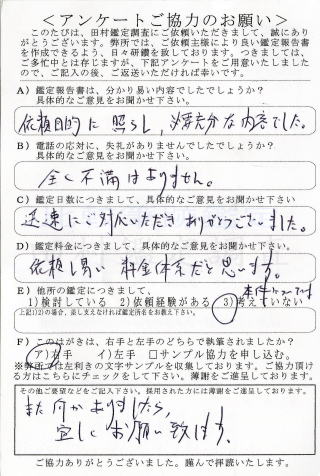 ＜アンケートご協力のお願い＞
このたびは、田村鑑定調査にご依頼いただきまして、誠にあり
がとうございます。弊所では、ご依頼主様により良い鑑定報告書
を作成できるよう、日々研鑽を致しております。つきましては、
ご多忙中とは存じますが、下記アンケートをご用意いたしました
ので、ご記入の後、ご返送いただければ幸いです。
A）鑑定報告書は、分かり易い内容でしたでしょうか？
具体的なご意見をお聞かせ下さい。
依頼目的に照らし、必要充分な内容でした。
B）電話の応対に、失礼がありませんでしたでしょうか？
具体的なご意見をお聞かせ下さい。
全く不満はありません。
C）鑑定日数につきまして、具体的なご意見をお聞かせ下さい
迅速にご対応いただきありがとうございました。
D）鑑定料金につきまして、具体的なご意見をお聞かせ下さい
依頼し易い料金体系だと思います。
E）他所の鑑定につきまして、
本件については
1）検討している 2）依頼経験がある 3）考えていない
上記1）2）の場合、差し支えなければ鑑定所名をお教え下さい。
F）このはがきは、右手と左手のどちらで執筆されましたか？
ア）右手 イ）左手 □サンプル協力を申し込む。
※弊所では左利きの文字サンプルを収集しております。ご協力頂け
る方はこちらにチェックをして下さい。薄謝をご進呈しております。
その他ご要望などをご記入下さい。採用された方には薄謝をご進呈しております。
また何かありましたら、
宜しくお願い致します。
ご協力ありがとうございました。謹んで拝読いたします。